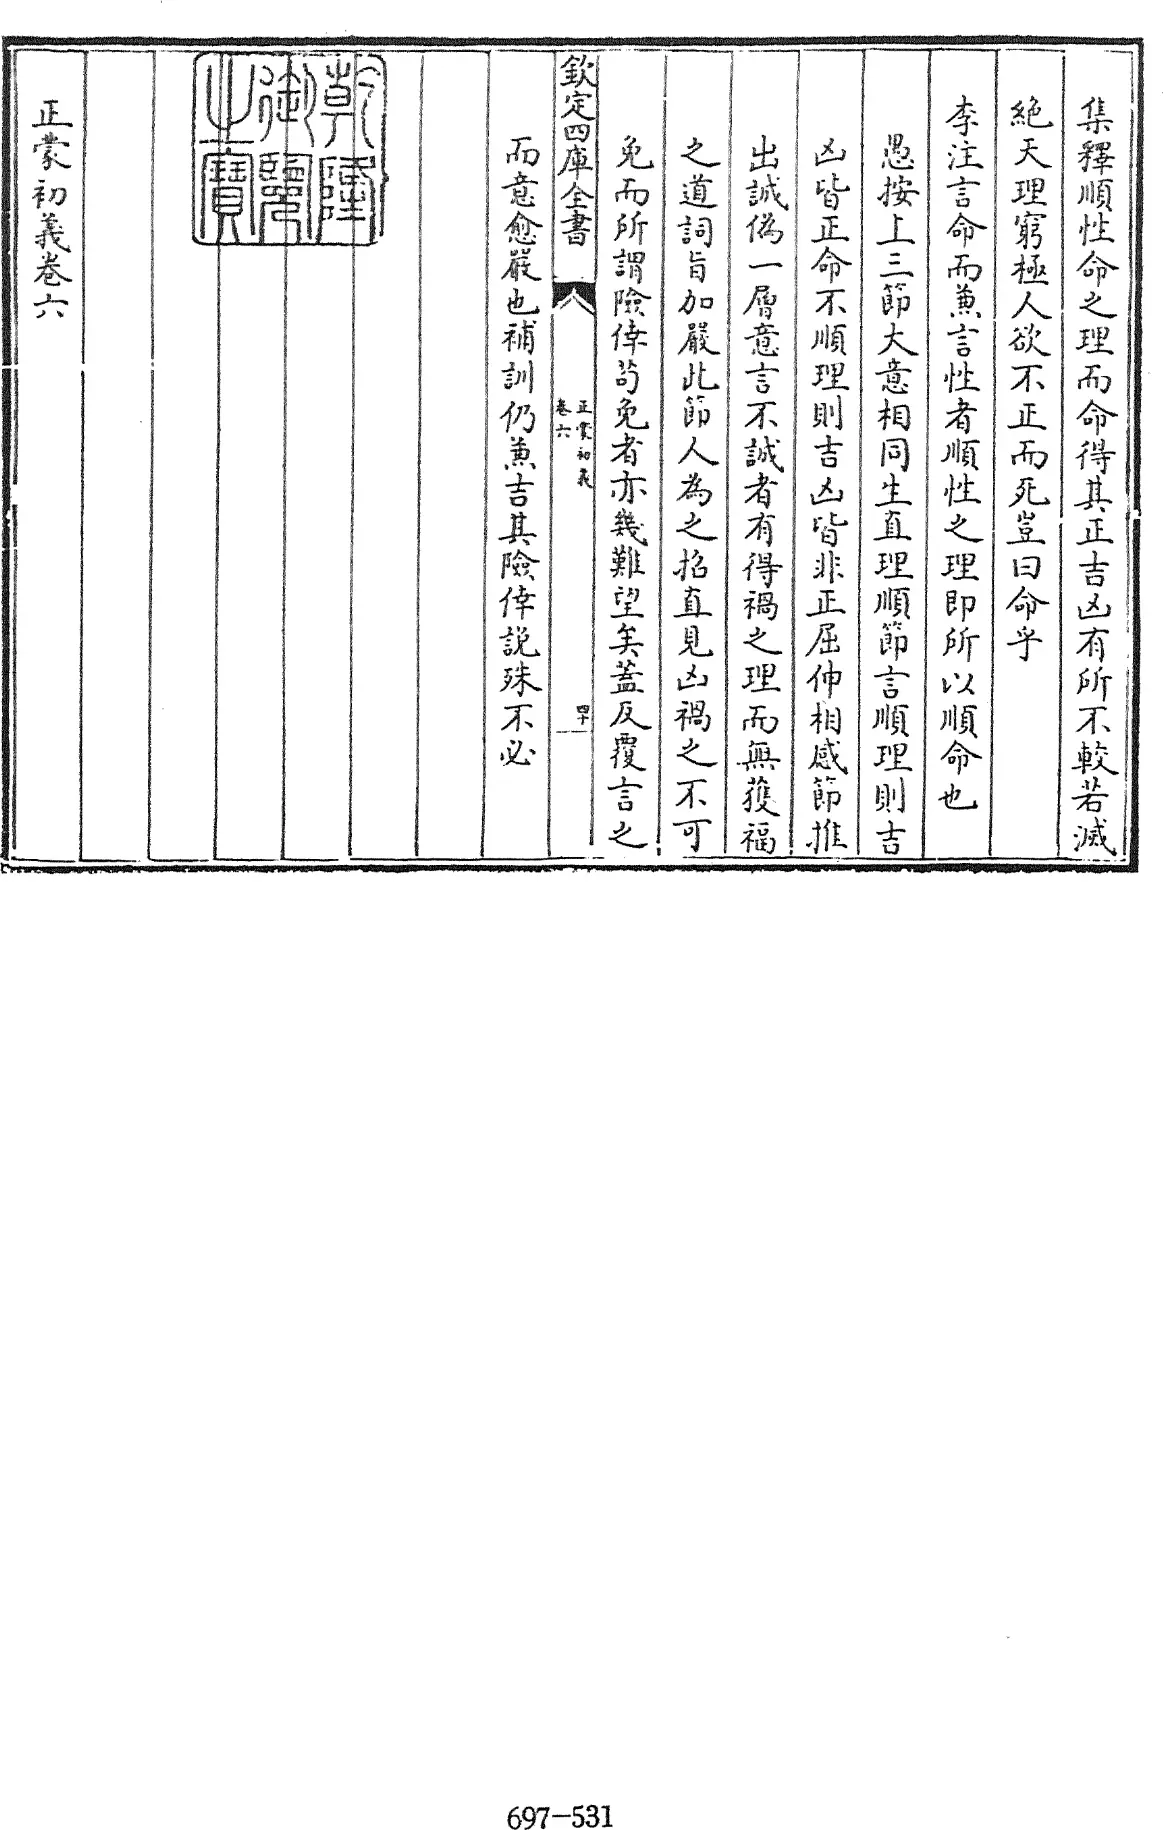 集釋順性命之理而命得其正吉凶有所不較若滅
絶天理窮極人欲不正而死豈曰命乎
李注言命而兼言性者順性之理即所以順命也
愚按上三節大意相同生直理順節言順理則吉
凶皆正命不順理則吉凶皆非正屈伸相感節推
出誠偽一層意言不誠者有得禍之理而無獲福
之道詞旨加嚴此節人為之招直見凶禍之不可
免而所謂險倖苟免者亦幾難望矣蓋反覆言之
欽定四庫全書
正蒙初義
卷六
四十
而意愈嚴也補訓仍兼吉其險倖說殊不必
乾隆
御覽
之寶
正蒙初義卷六
697-531